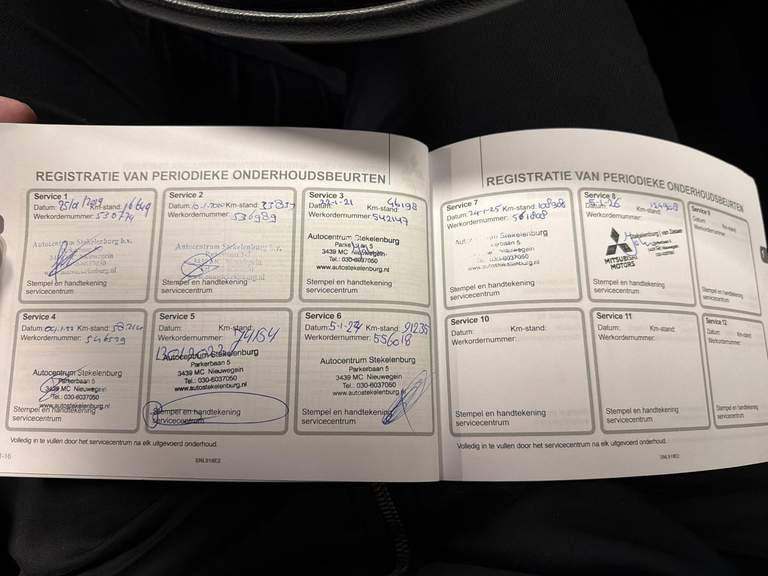 REGISTRATIE VAN PERIODIEKE ONDERHOUDSBEURTEN
Service 1
Datum: Km-stand:
Werkordernummer: 530774
Autocentrum Stekelenburg b.v.
Stempel en handtekening
servicecentrum
Service 2
Datum: Km-stand:
Werkordernummer: 536989
Autocentrum Stekelenburg b.v.
Stempel en handtekening
servicecentrum
Service 3
Datum: 22-1-21 Km-stand: 46198
Werkordernummer: 542147
Autocentrum Stekelenburg
3439 MC Nieuwegein
Tel.: 030-6037050
www.autostekelenburg.nl
Stempel en handtekening
servicecentrum
Service 4
Datum: Km-stand:
Werkordernummer:
Autocentrum Stekelenburg
Parkerbaan 5
3439 MC Nieuwegein
Tel.: 030-6037050
www.autostekelenburg.nl
Stempel en handtekening
servicecentrum
Service 5
Datum: Km-stand: 74154
Werkordernummer:
Autocentrum Stekelenburg
Parkerbaan 5
3439 MC Nieuwegein
Tel.: 030-6037050
www.autostekelenburg.nl
Stempel en handtekening
servicecentrum
Service 6
Datum: 5-1-24 Km-stand: 91235
Werkordernummer: 556018
Autocentrum Stekelenburg
Parkerbaan 5
3439 MC Nieuwegein
Tel.: 030-6037050
www.autostekelenburg.nl
Stempel en handtekening
servicecentrum
Volledig in te vullen door het servicecentrum na elk uitgevoerd onderhoud.
ENL918E2
REGISTRATIE VAN PERIODIEKE ONDERHOUDSBEURTEN
Service 7
Datum: 24-1-25 Km-stand: 108908
Werkordernummer: 561808
www.autostekelenburg.nl
Stempel en handtekening
servicecentrum
Service 8
Datum: Km-stand:
Werkordernummer:
MITSUBISHI
MOTORS
Stempel en handtekening
servicecentrum
Service 9
Datum: Km-stand:
Werkordernummer:
Stempel en handtekening
servicecentrum
Service 10
Datum: Km-stand:
Werkordernummer:
Stempel en handtekening
servicecentrum
Service 11
Datum: Km-stand:
Werkordernummer:
Stempel en handtekening
servicecentrum
Service 12
Datum: Km-stand:
Werkordernummer:
Stempel en handtekening
servicecentrum
Volledig in te vullen door het servicecentrum na elk uitgevoerd onderhoud.
ENL918E2